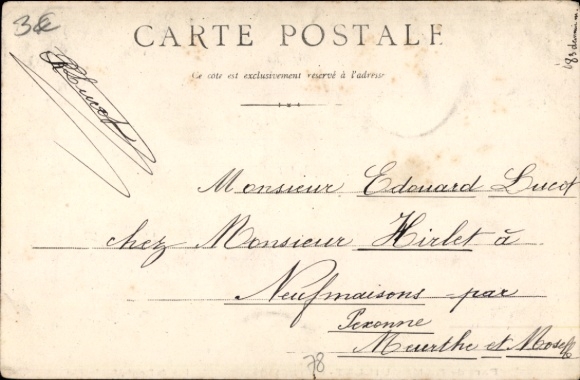 3€
CARTE POSTALE
Ce côté est exclusivement réservé à l'adresse
Monsieur Edouard Lucot
chez Monsieur Hirlet à
Neufmaisons par
Pexonne
Meurthe et Moselle
78